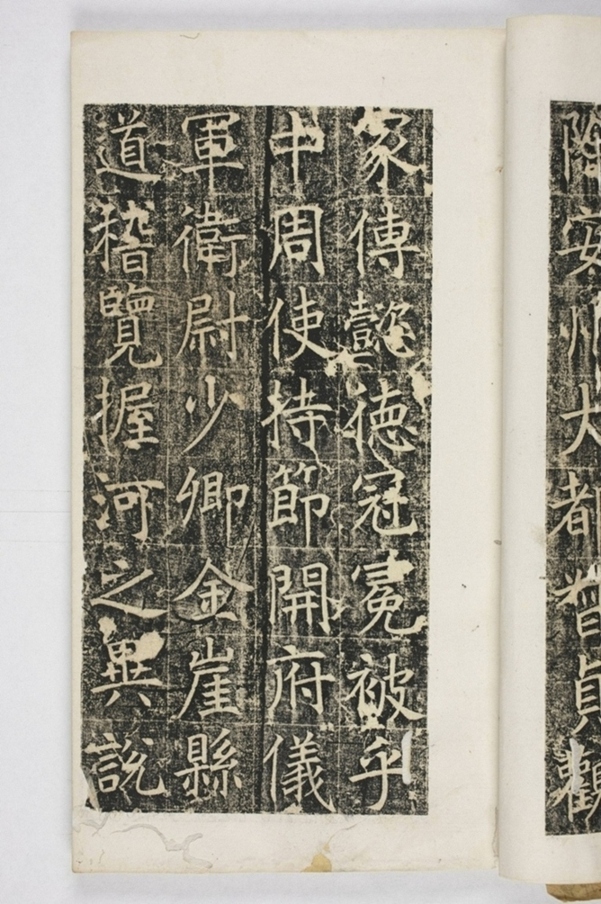 降安州大都督貞觀
家傳懿德冠冕被乎
中周使持節開府儀
軍衛尉少卿金崖縣
道稽覽握河之異說